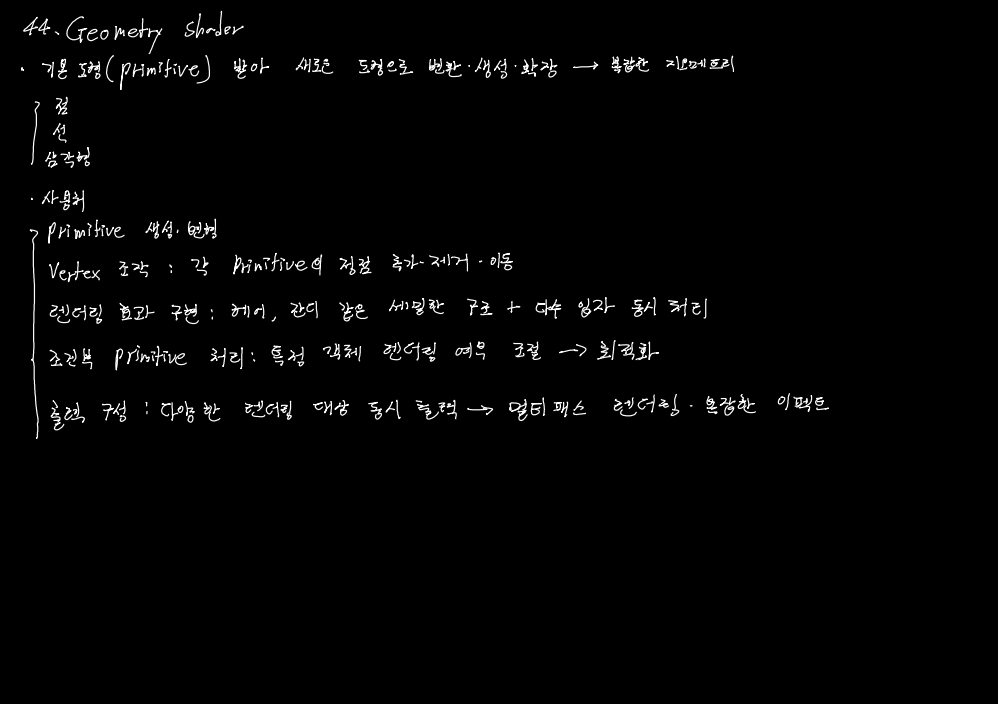 44. Geometry shader
· 기본 도형(primitive) 받아 새로운 도형으로 변환·생성·확장 → 복잡한 지오메트리
점
선
삼각형
· 사용처
primitive 생성·변형
Vertex 조작 : 각 primitive의 정점 추가·제거·이동
렌더링 효과 구현 : 헤어, 잔디 같은 세밀한 구조 + 다수 입자 동시 처리
조건부 primitive 처리 : 특정 객체 렌더링 여부 조절 → 최적화
출력 구성 : 다양한 렌더링 대상 동시 출력 → 멀티패스 렌더링·복잡한 이펙트